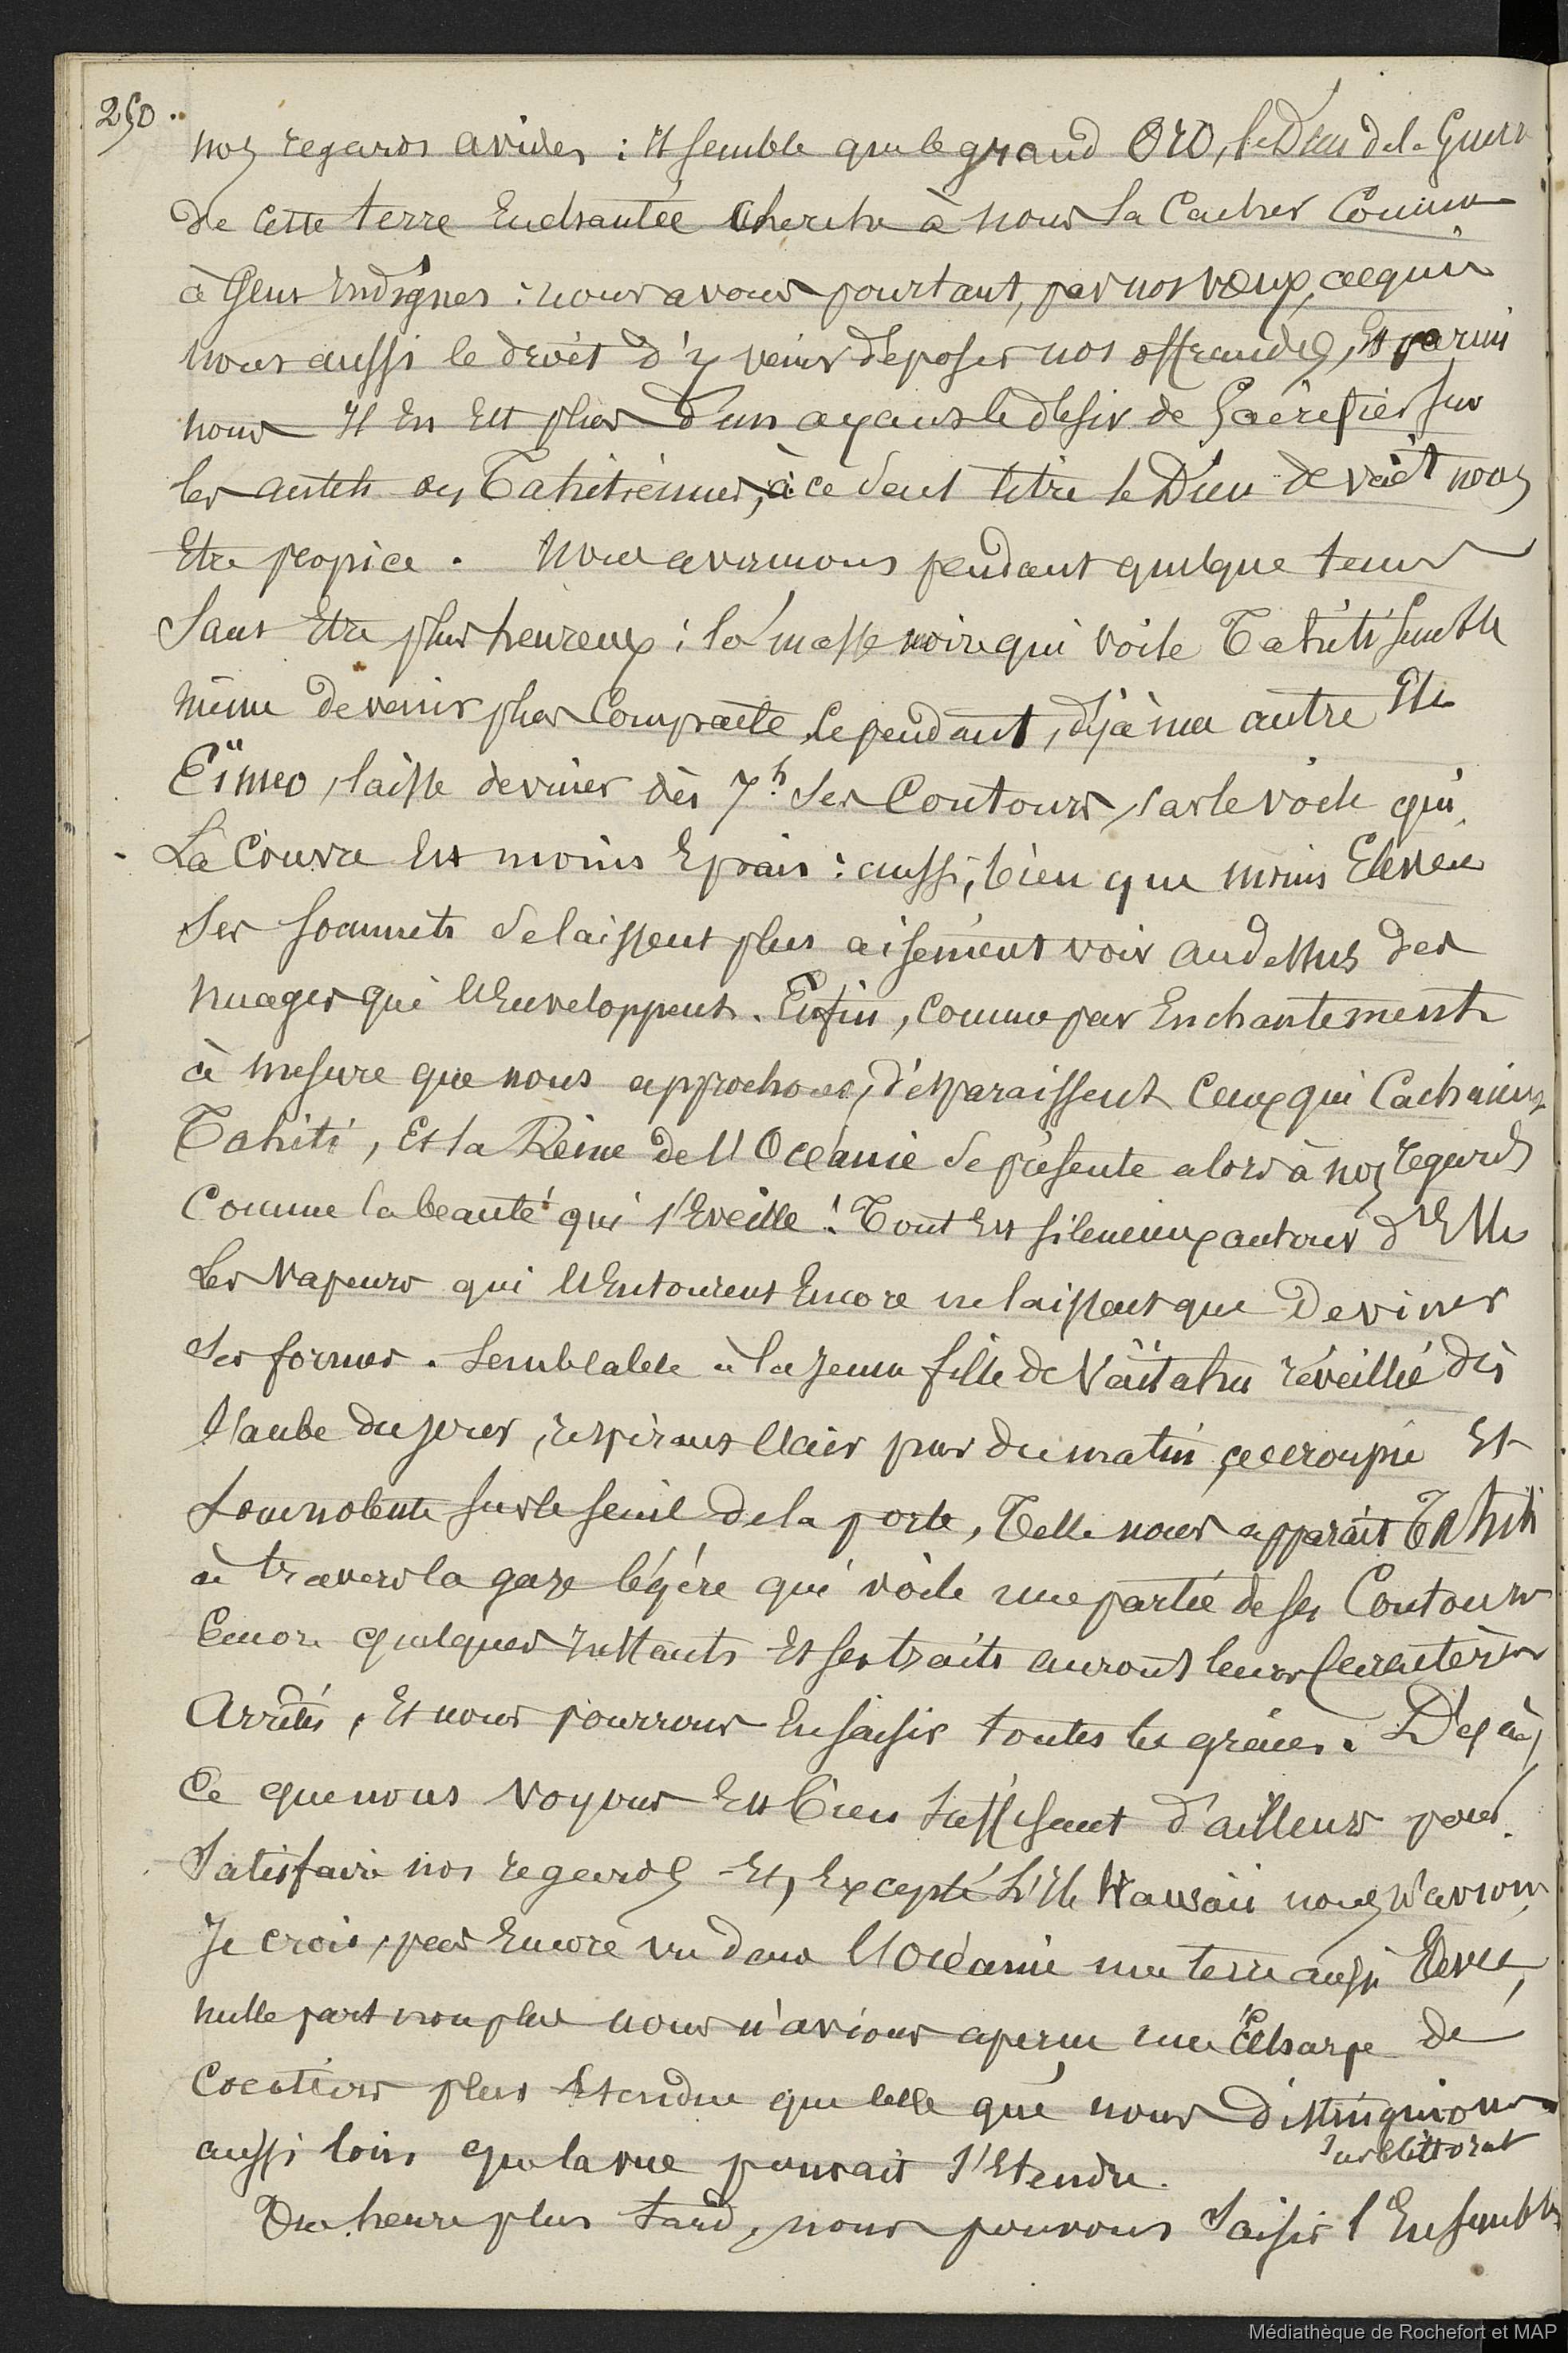 250..
nos regards avides : il semble que le grand ORO, le Dieu de la Guerre
de cette terre Enchantée Cherche à nous la Cacher Comme
à Gens indignes : nous avons pourtant, par nos vœux, acquis
nous aussi le droit d'y venir déposer nos offrandes, Et parmi
nous Il En Est plus d'un ayant le désir de Sacrifier sur
les autels des Tahitiennes, à ce seul titre le Dieu devait nous
Etre propice. Nous avançons pendant quelque tems
Sans Etre plus heureux : la masse noire qui voile Tahiti semble
même devenir plus Compacte, Cependant, déjà une autre Ile
Eïmeo, laisse deviner dès 7h Ses Contours, car le voile qui
La Couvre Est moins Epais : aussi, bien que moins Elevée
Ses Sommets se laissent plus aisément voir au dessus des
nuages qui l'Enveloppent. Enfin, comme par Enchantement
à mesure que nous approchons, disparaissent Ceux qui Cachaient
Tahiti, Et la Reine de l'Océanie se présente alors à nos regards
Comme la beauté qui s'Eveille ! Tout Est silencieux autour d'Elle
Les Vapeurs qui l'Entourent Encore ne laissent que Deviner
Ses formes. Semblable à la jeune fille de Vaïtahu réveillée dès
l'aube du jour, respirant l'air pur du matin, accroupie Et
Somnolente sur le seuil de la porte, Telle nous apparait Tahiti
à travers la gaze légère qui voile une partie de ses Contours
Encore quelques instants Et ses traits auront leurs Caractères
Arrêtés, Et nous pourrons En saisir toutes les grâces. Déjà,
Ce que nous voyons Est bien suffisant d'ailleurs pour
Satisfaire nos regards Et, Excepté L'Ile Hawaii nous n'avions
Je crois, pas Encore vu dans l'Océanie une terre aussi Elevée,
nulle part non plus nous n'avions aperçu une Echarpe de
Cocotiers plus Etendue que celle que nous distinguions
sur le littoral
aussi loin que la vue pouvait s'Etendre.
Une heure plus tard, nous pouvons Saisir l'Ensemble
Médiathèque de Rochefort et MAP